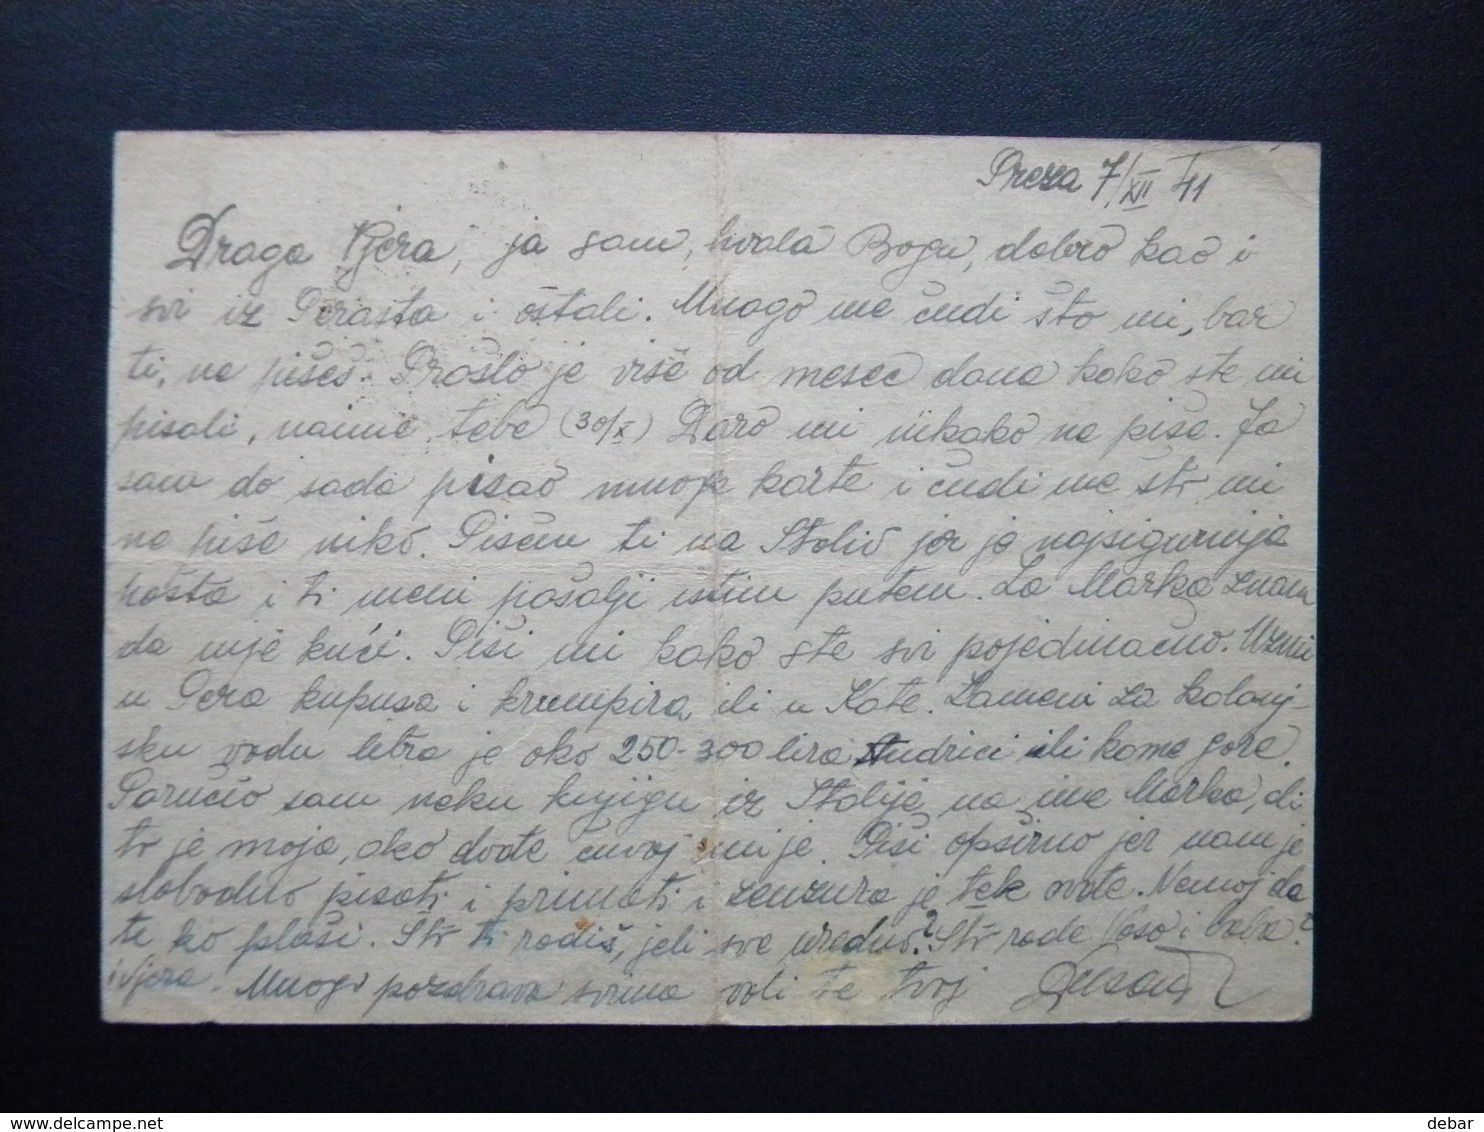 Preza 7/XII 41
Draga Vjera, ja sam, hvala Bogu, dobro kao i
svi iz Perasta i ostali. Mnogo me čudi što mi, bar
ti, ne pišeš. Prošlo je više od mesec dana kako ste mi
pisali, naime tebe (30/X) Daro mi nikako ne piše. Ja
sam do sada pisao mnoge karte i čudi me što mi
ne piše niko. Pišem ti na Stoliv jer je najsigurnija
pošta i ti meni pošalji istim putem. Za Marka znam
da nije kući. Piši mi kako ste svi pojedinačno. Uzmi
u Pera kupusa i krumpira ili u Kate. Zameni za kolonj-
sku vodu litra je oko 250-300 lira Andrici ili kome gore.
Poručio sam neku knjigu iz Italije na ime Marka, ali
to je moja, ako dođe čuvaj mi je. Piši opširno jer nam je
slobodno pisati i primati i cenzura je tek ovde. Nemoj da
te ko plaši. Što ti radiš, jeli sve uredno? Što rade Vaso i baba?
i Vjera. Mnogo pozdrava svima voli te tvoj
debar
www.delcampe.net